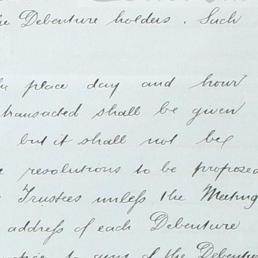 the Debenture holders. Such
the place day and hour
transacted shall be given
but it shall not be
resolutions to be proposed
Trustees unless the Meeting
address of each Debenture
to any of the Debenture